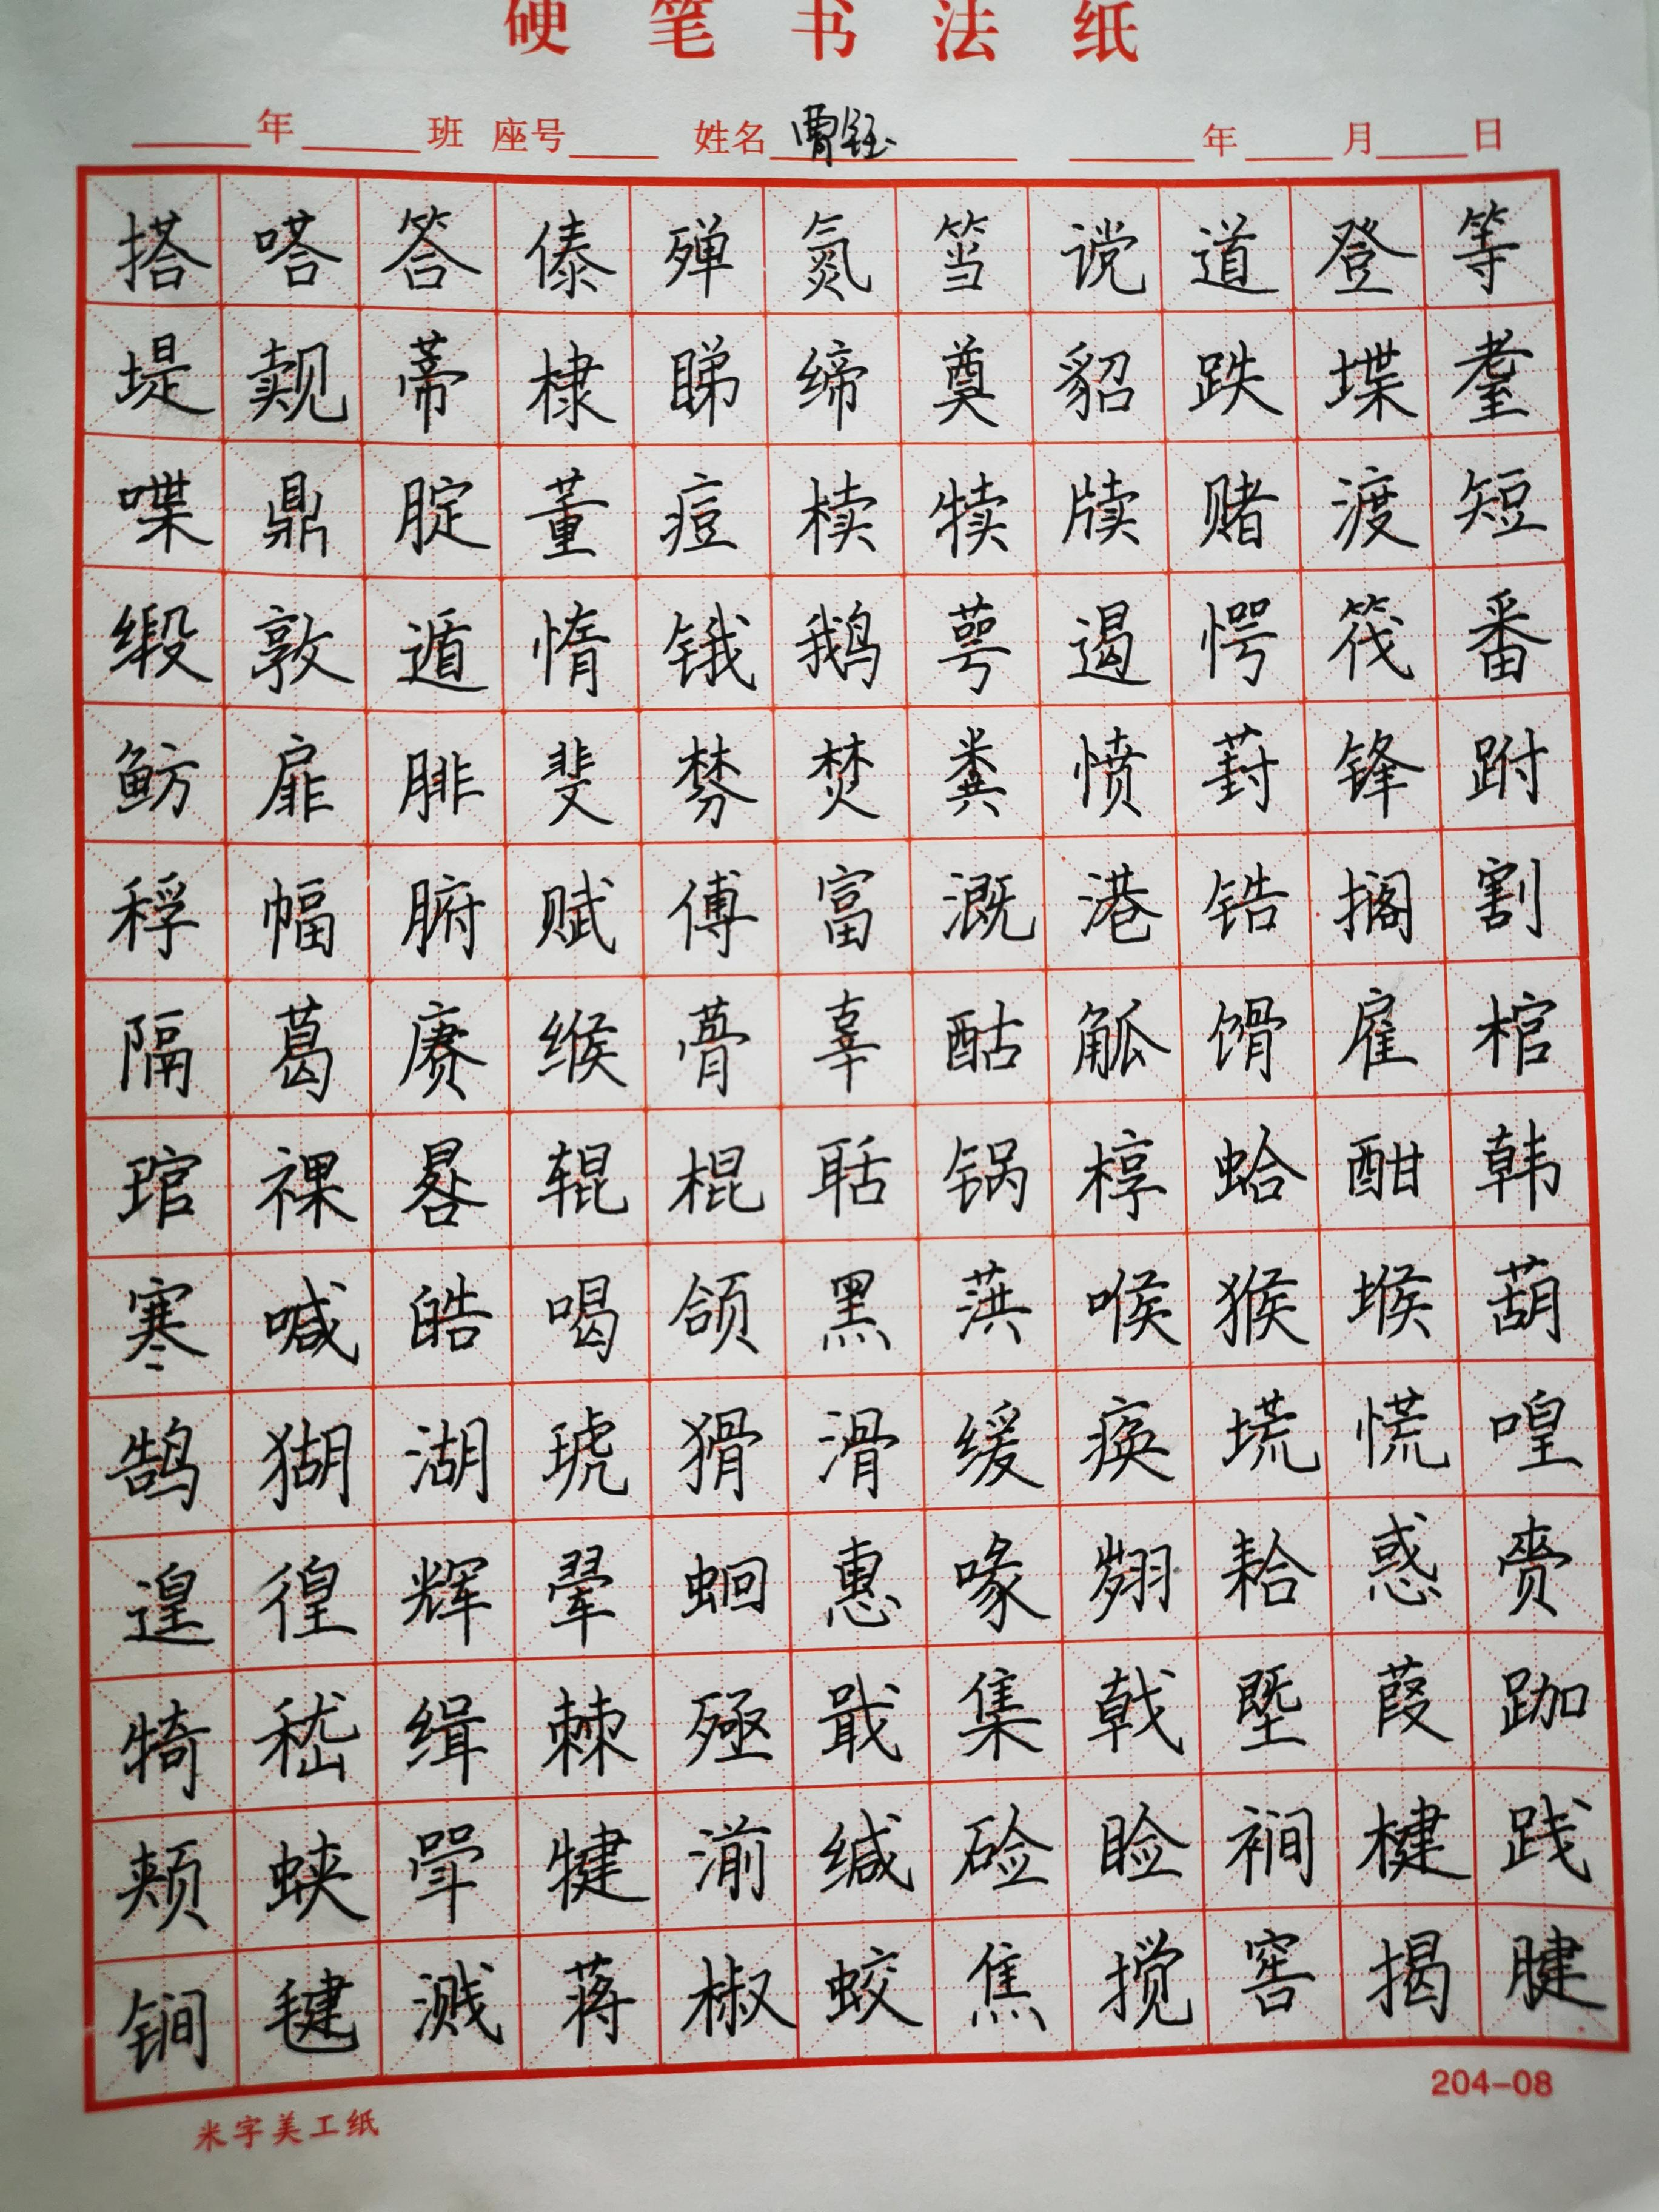 硬笔书法纸
年 班 座号 姓名 年 月 日
搭 嗒 答 傣 殚 氮 筜 谠 道 登 等
堤 觌 蒂 棣 睇 缔 奠 貂 跌 堞 耋
喋 鼎 腚 董 痘 椟 犊 牍 赌 渡 短
缎 敦 遁 惰 锇 鹅 萼 遏 愕 筏 番
鲂 扉 腓 斐 棼 焚 粪 愤 葑 锋 跗
稃 幅 腑 赋 傅 富 溉 港 锆 搁 割
隔 葛 赓 缑 蓇 辜 酤 觚 馉 雇 棺
琯 祼 晷 辊 棍 聒 锅 椁 蛤 酣 韩
寒 喊 皓 喝 颌 黑 葓 喉 猴 堠 葫
鹄 猢 湖 琥 猾 滑 缓 痪 塃 慌 喤
遑 徨 辉 翚 蛔 惠 喙 翙 耠 惑 赍
犄 嵇 缉 棘 殛 戢 集 戟 塈 葭 跏
颊 蛱 斝 犍 湔 缄 硷 睑 裥 楗 践
锏 毽 溅 蒋 椒 蛟 焦 搅 窖 揭 腱
米字美工纸
204-08